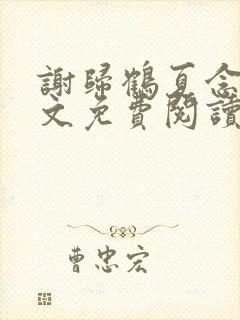 謝歸鶴夏念
文免費閱讀
曹忠宏